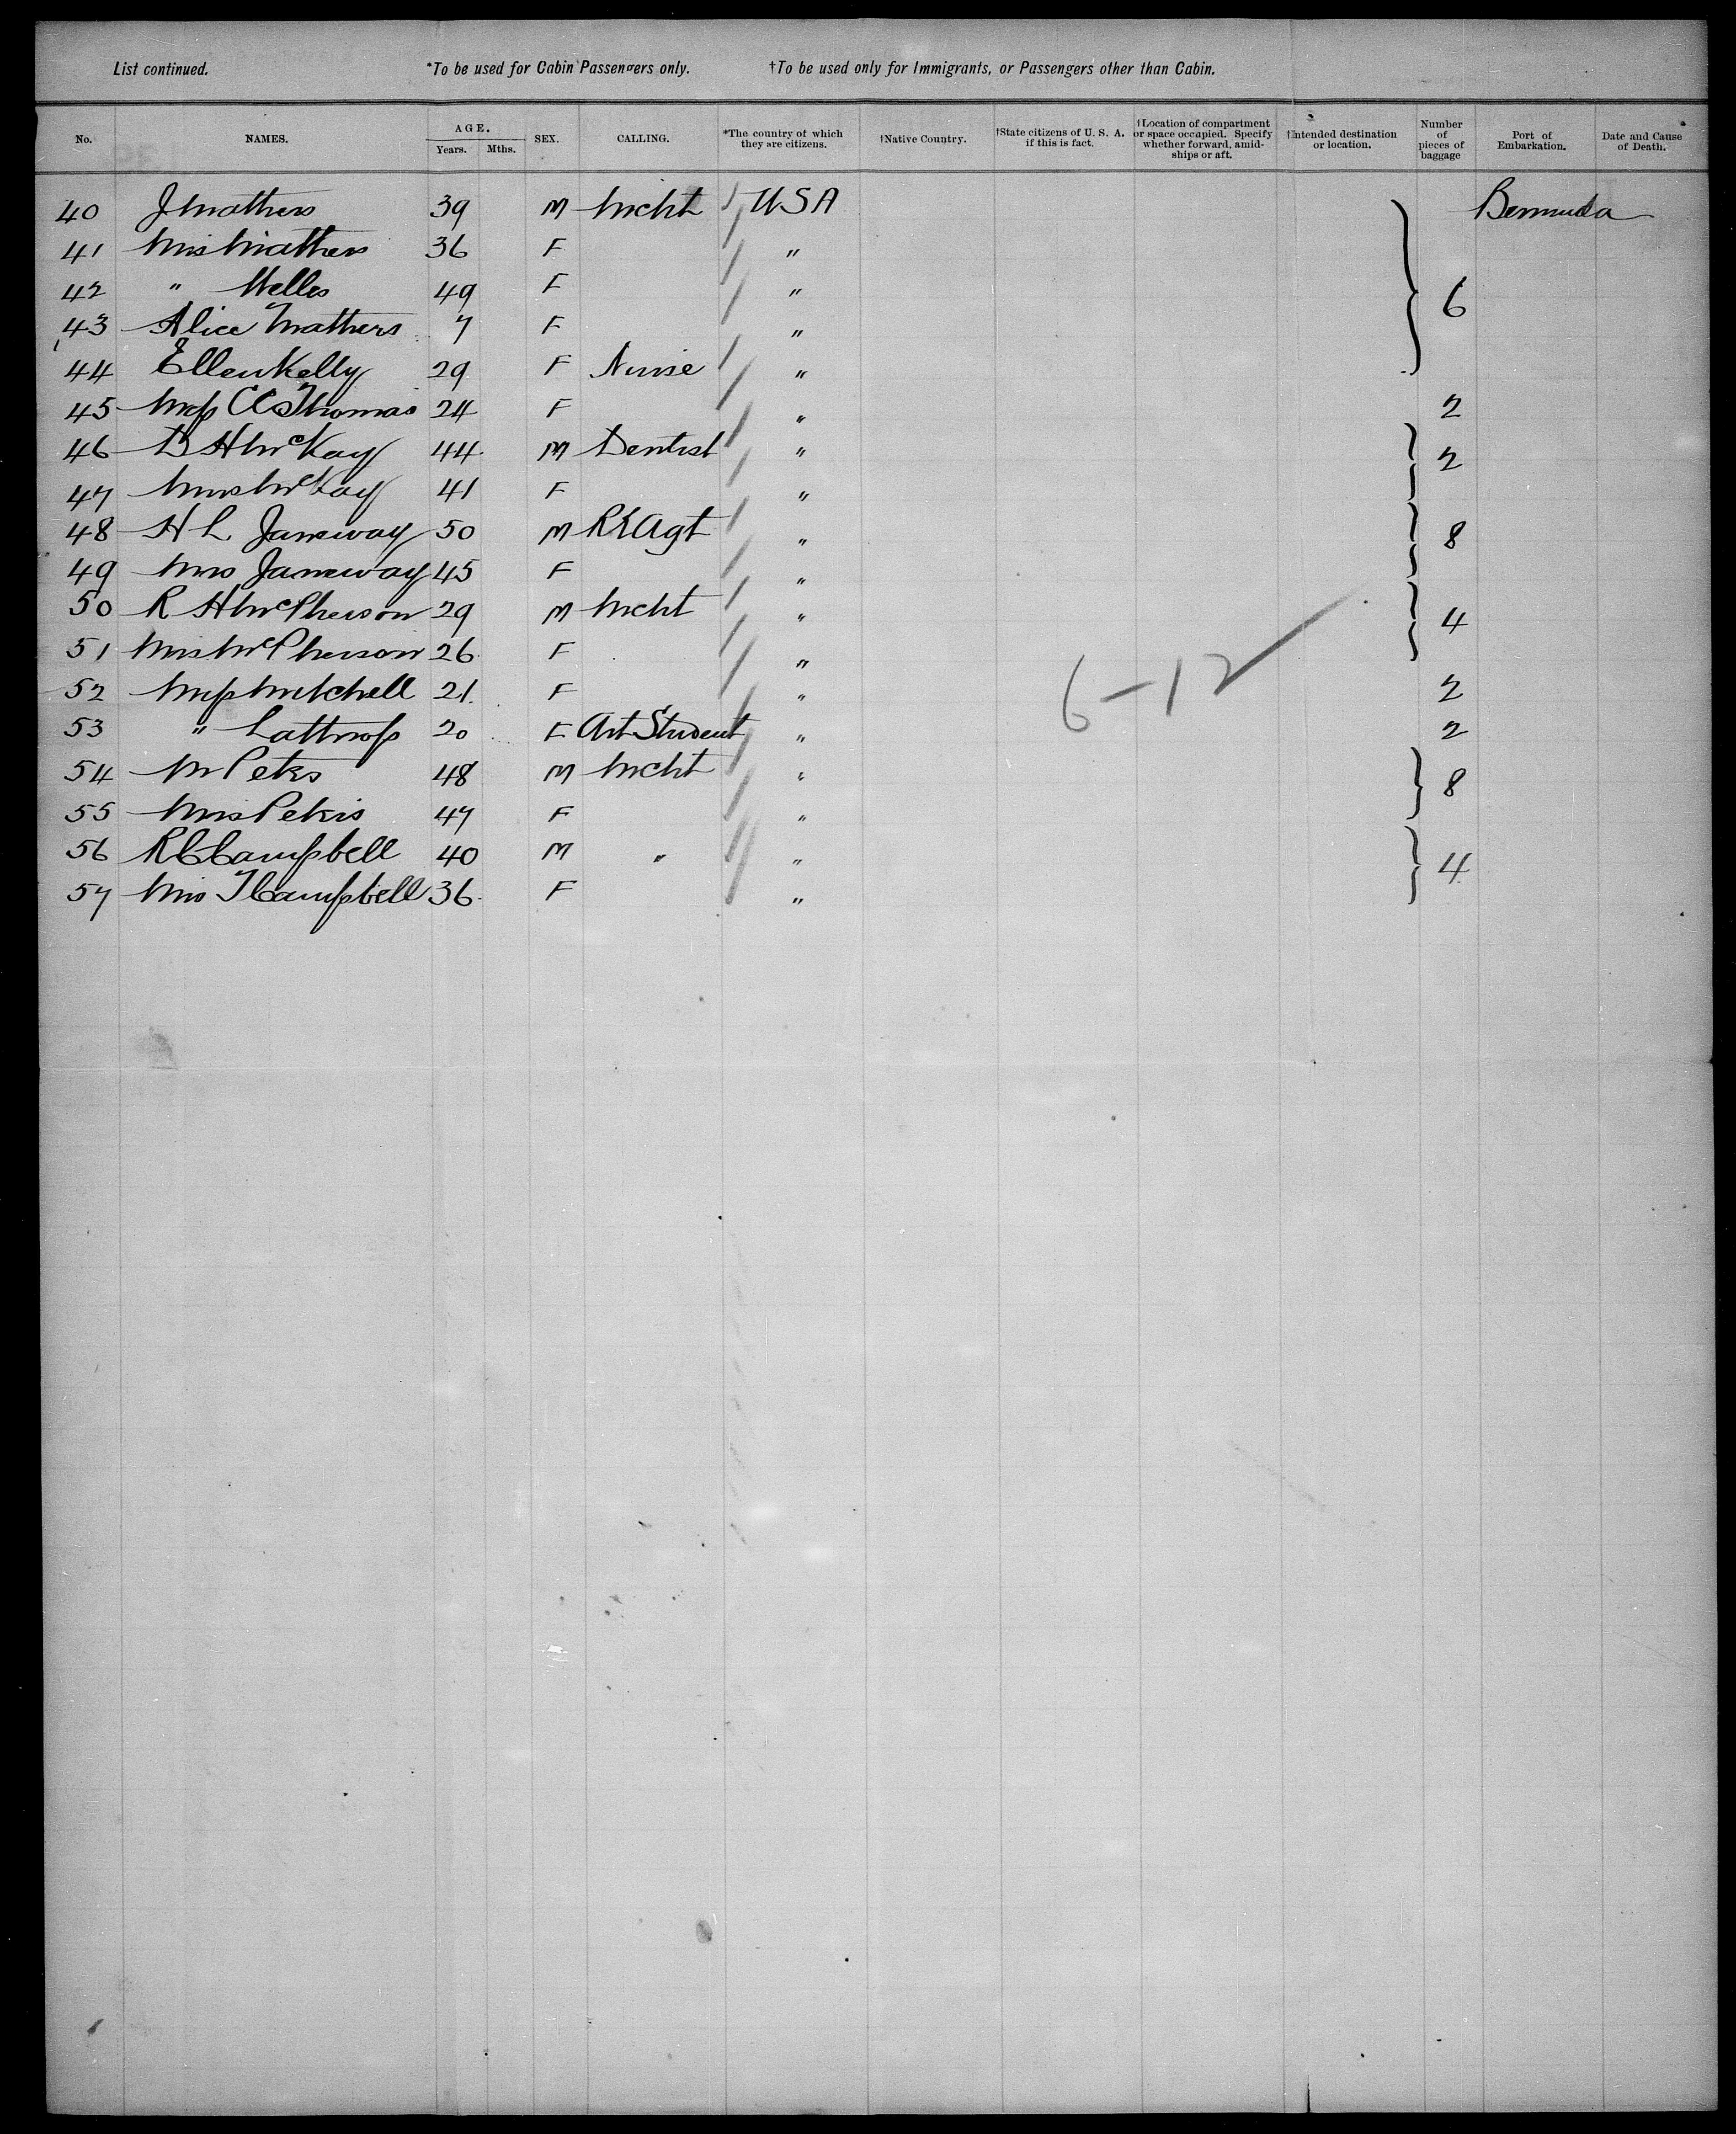 List continued. *To be used for Cabin Passengers only. †To be used only for Immigrants, or Passengers other than Cabin.
No. NAMES. AGE. Years. Mths. SEX. CALLING. *The country of which they are citizens. †Native Country. †State citizens of U. S. A. if this is fact. †Location of compartment or space occupied. Specify whether forward, amid-ships or aft. †Intended destination or location. Number of pieces of baggage Port of Embarkation. Date and Cause of Death.
40 J Mathers 39 M Mcht USA Bermuda
41 Mrs Mathers 36 F "
42 " Welles 49 F " 6
43 Alice Mathers 7 F "
44 Ellen Kelly 29 F Nurse "
45 Miss CC Thomas 24 F " 2
46 D H McKay 44 M Dentist " 2
47 Mrs McKay 41 F "
48 H L Janeway 50 M RE Agt " 8
49 Mrs Janeway 45 F "
50 R H McPherson 29 M Mcht " 4
51 Mrs McPherson 26 F "
52 Miss Mitchell 21 F " 2
6-12
53 " Lathrop 20 F Art Student " 2
54 Mr 48 M Mcht " 8
55 Mrs 47 F "
56 R C Campbell 40 M " " 4
57 Mrs J Campbell 36 F "